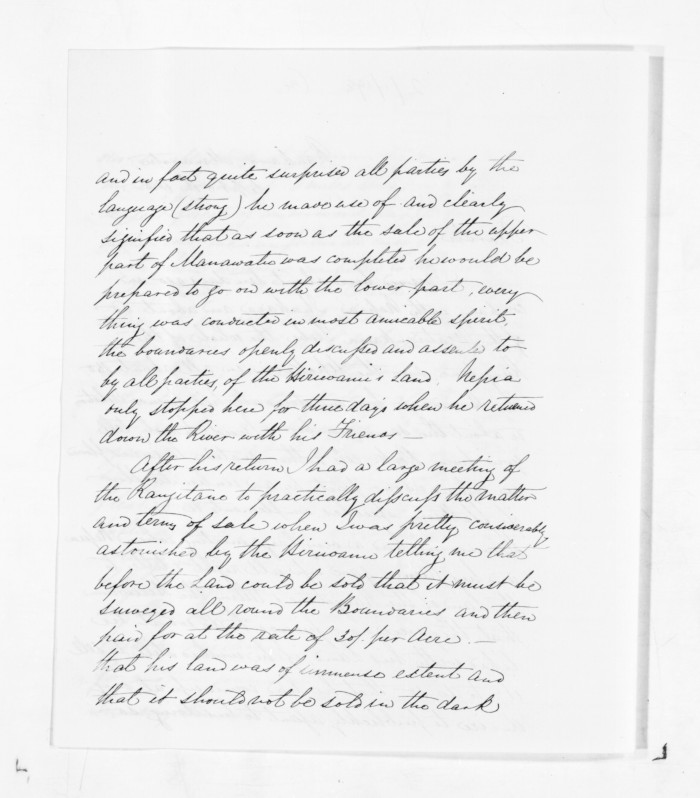 and in fact quite surprised all parties by the
language (strong) he made use of and clearly
signified that as soon as the sale of the upper
part of Manawatu was completed he would be
prepared to go on with the lower part, every
thing was conducted in most amicable spirit,
the boundaries openly discussed and assented to
by all parties, of the Hiriwanu's Land. Nepia
only stopped here for three days when he returned
down the River with his Friends —
After his return I had a large meeting of
the Rangitane to practically disscuss the matter
and terms of sale when I was pretty considerably
astonished by the Hiriwanu telling me that
before the Land could be sold that it must be
surveyed all round the Boundaries and then
paid for at the rate of 30/. per Acre. —
that his land was of immense extent and
that it should not be sold in the dark